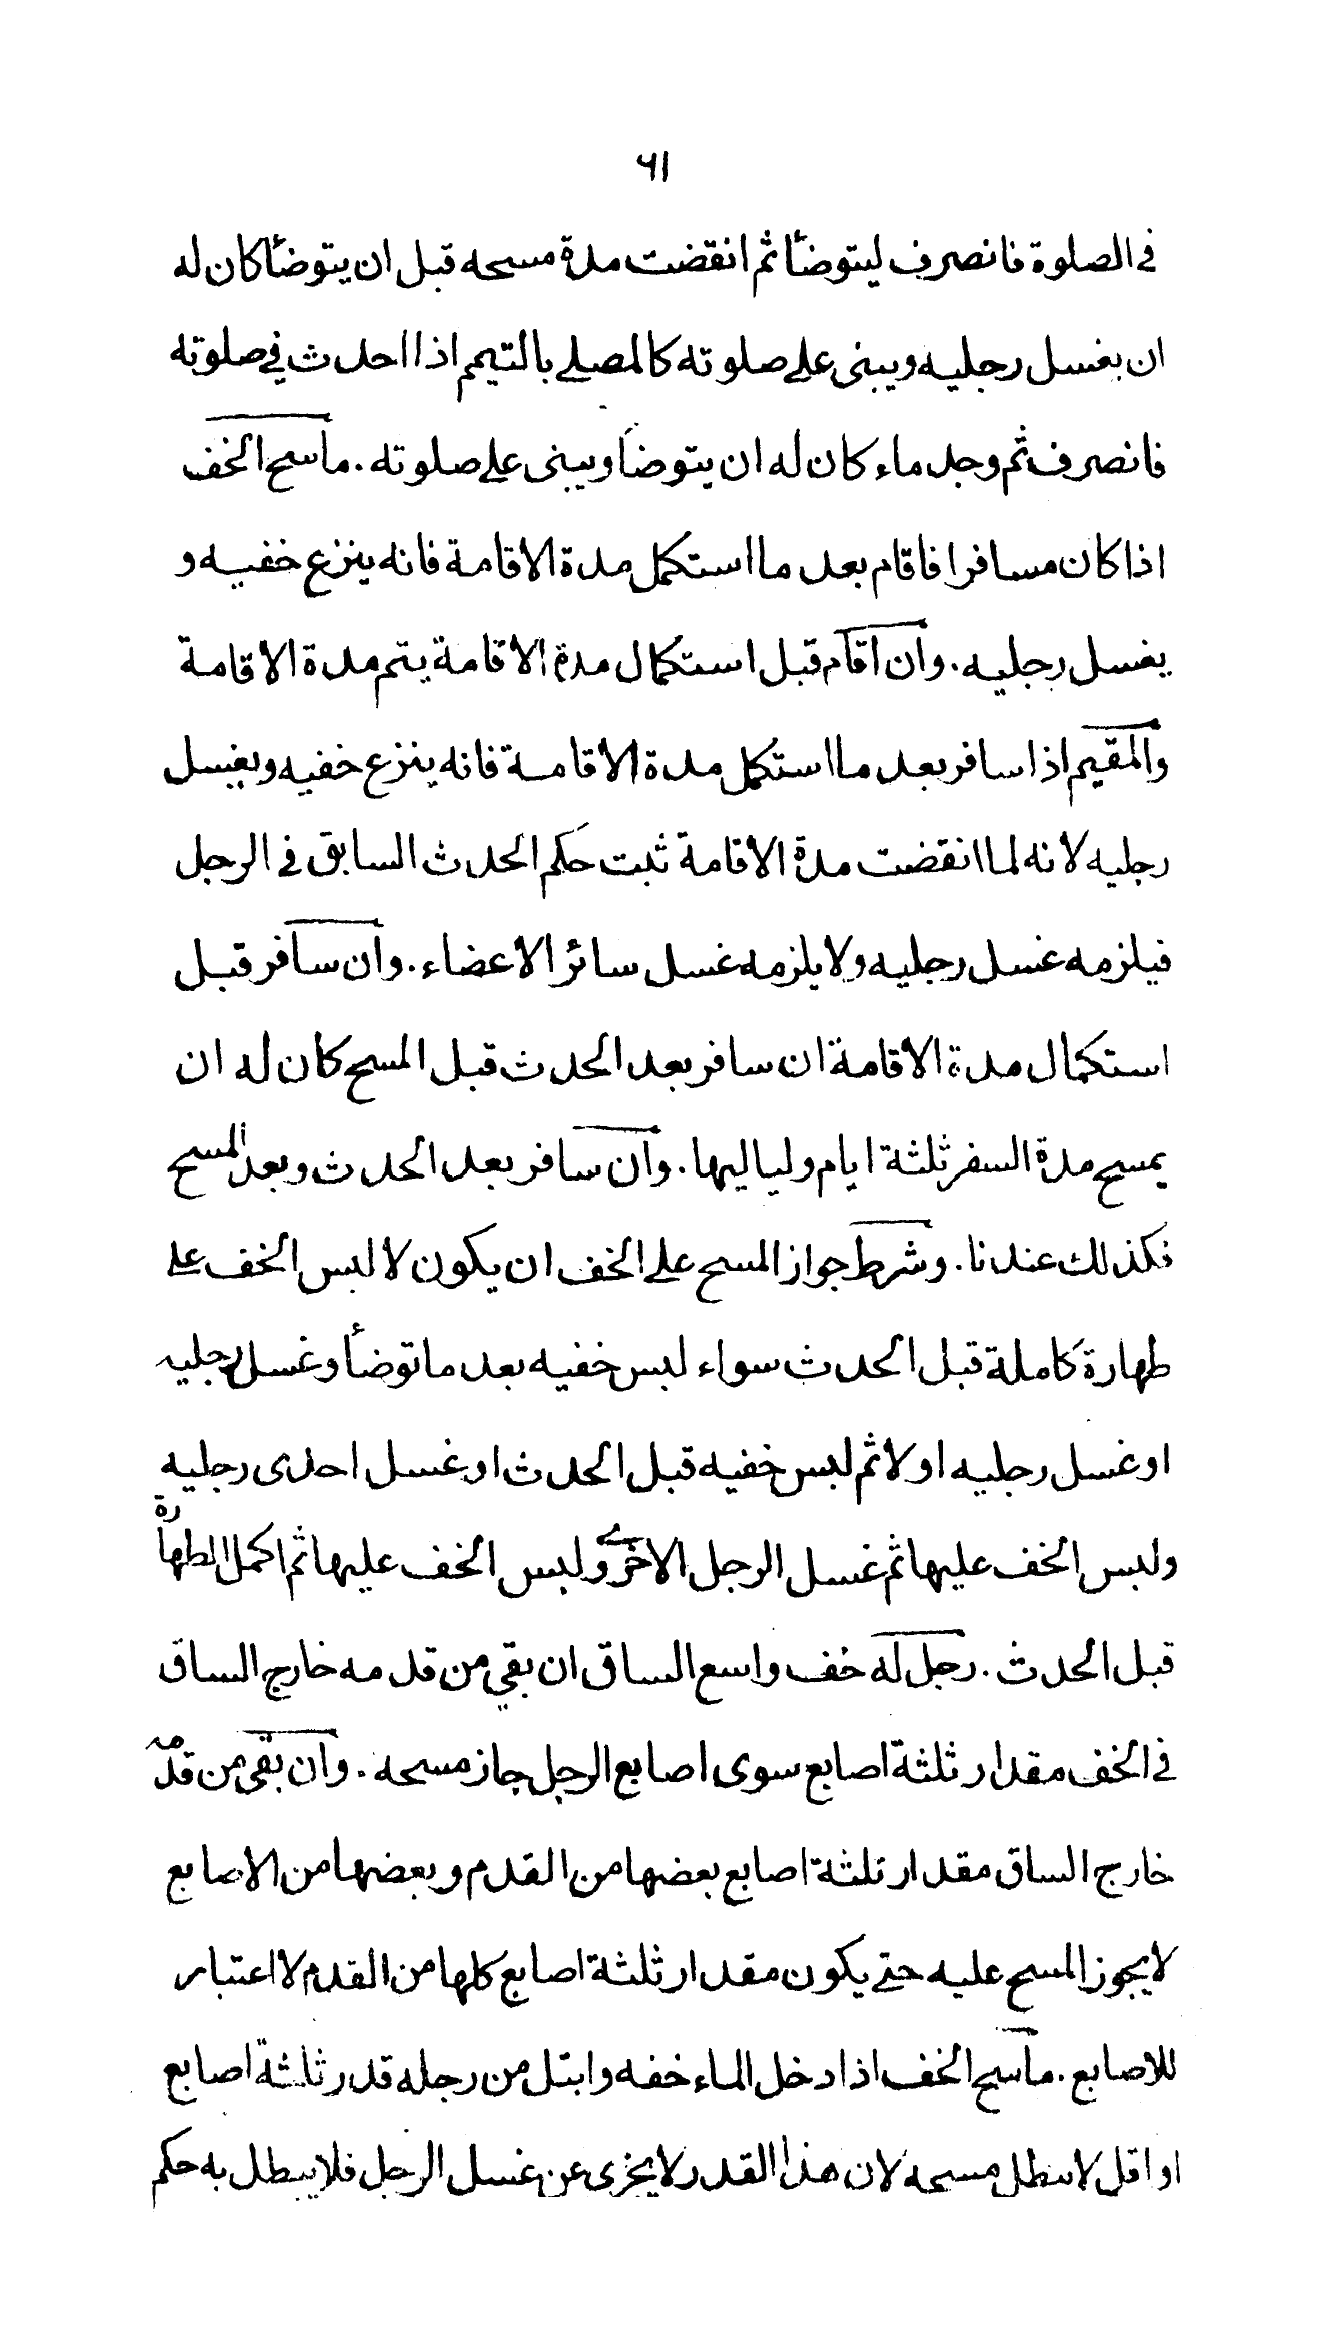 ٦١
في الصلوة فانصرف ليتوضأ ثم انقضت مدة مسحه قبل ان يتوضأ كان له
ان يغسل رجليه ويبنى على صلوته كالمصلے بالتيمم اذا احدث في صلوته
فانصرف ثم وجد ماء كان له ان يتوضأ ويبنى على صلوته. ماسح الخف
اذا كان مسافرا فاقام بعد ما استكمل مدة الاقامة فانه ينزع خفيه و
يغسل رجليه. وان اقام قبل استكمال مدة الاقامة يتم مدة الاقامة
والمقيم اذا سافر بعد ما استكمل مدة الاقامة فانه ينزع خفيه ويغسل
رجليه لانه لما انقضت مدة الاقامة ثبت حكم الحدث السابق في الرجل
فيلزمه غسل رجليه ولا يلزمه غسل سائر الاعضاء. وان سافر قبل
استكمال مدة الاقامة ان سافر بعد الحدث قبل المسح كان له ان
يمسح مدة السفر ثلثة ايام ولياليها. وان سافر بعد الحدث وبعد المسح
فكذلك عندنا. وشرط جواز المسح على الخف ان يكون لابس الخف على
طهارة كاملة قبل الحدث سواء لبس خفيه بعد ما توضأ وغسل رجليه
او غسل رجليه اولا ثم لبس خفيه قبل الحدث او غسل احدى رجليه
ولبس الخف عليها ثم غسل الرجل الاخرے ولبس الخف عليها ثم اكمل الطهارة
قبل الحدث. رجل له خف واسع الساق ان بقي من قدمه خارج الساق
في الخف مقدار ثلثة اصابع سوى اصابع الرجل جاز مسحه. وان بقي من قدمه
خارج الساق مقدار ثلثة اصابع بعضها من القدم وبعضها من الاصابع
لا يجوز المسح عليه حتے يكون مقدار ثلثة اصابع كلها من القدم لا اعتبار
للاصابع. ماسح الخف اذا دخل الماء خفه وابتل من رجله قدر ثلثة اصابع
او اقل لا يبطل مسحه لان هذا القدر لا يجزى عن غسل الرجل فلا يبطل به حكم